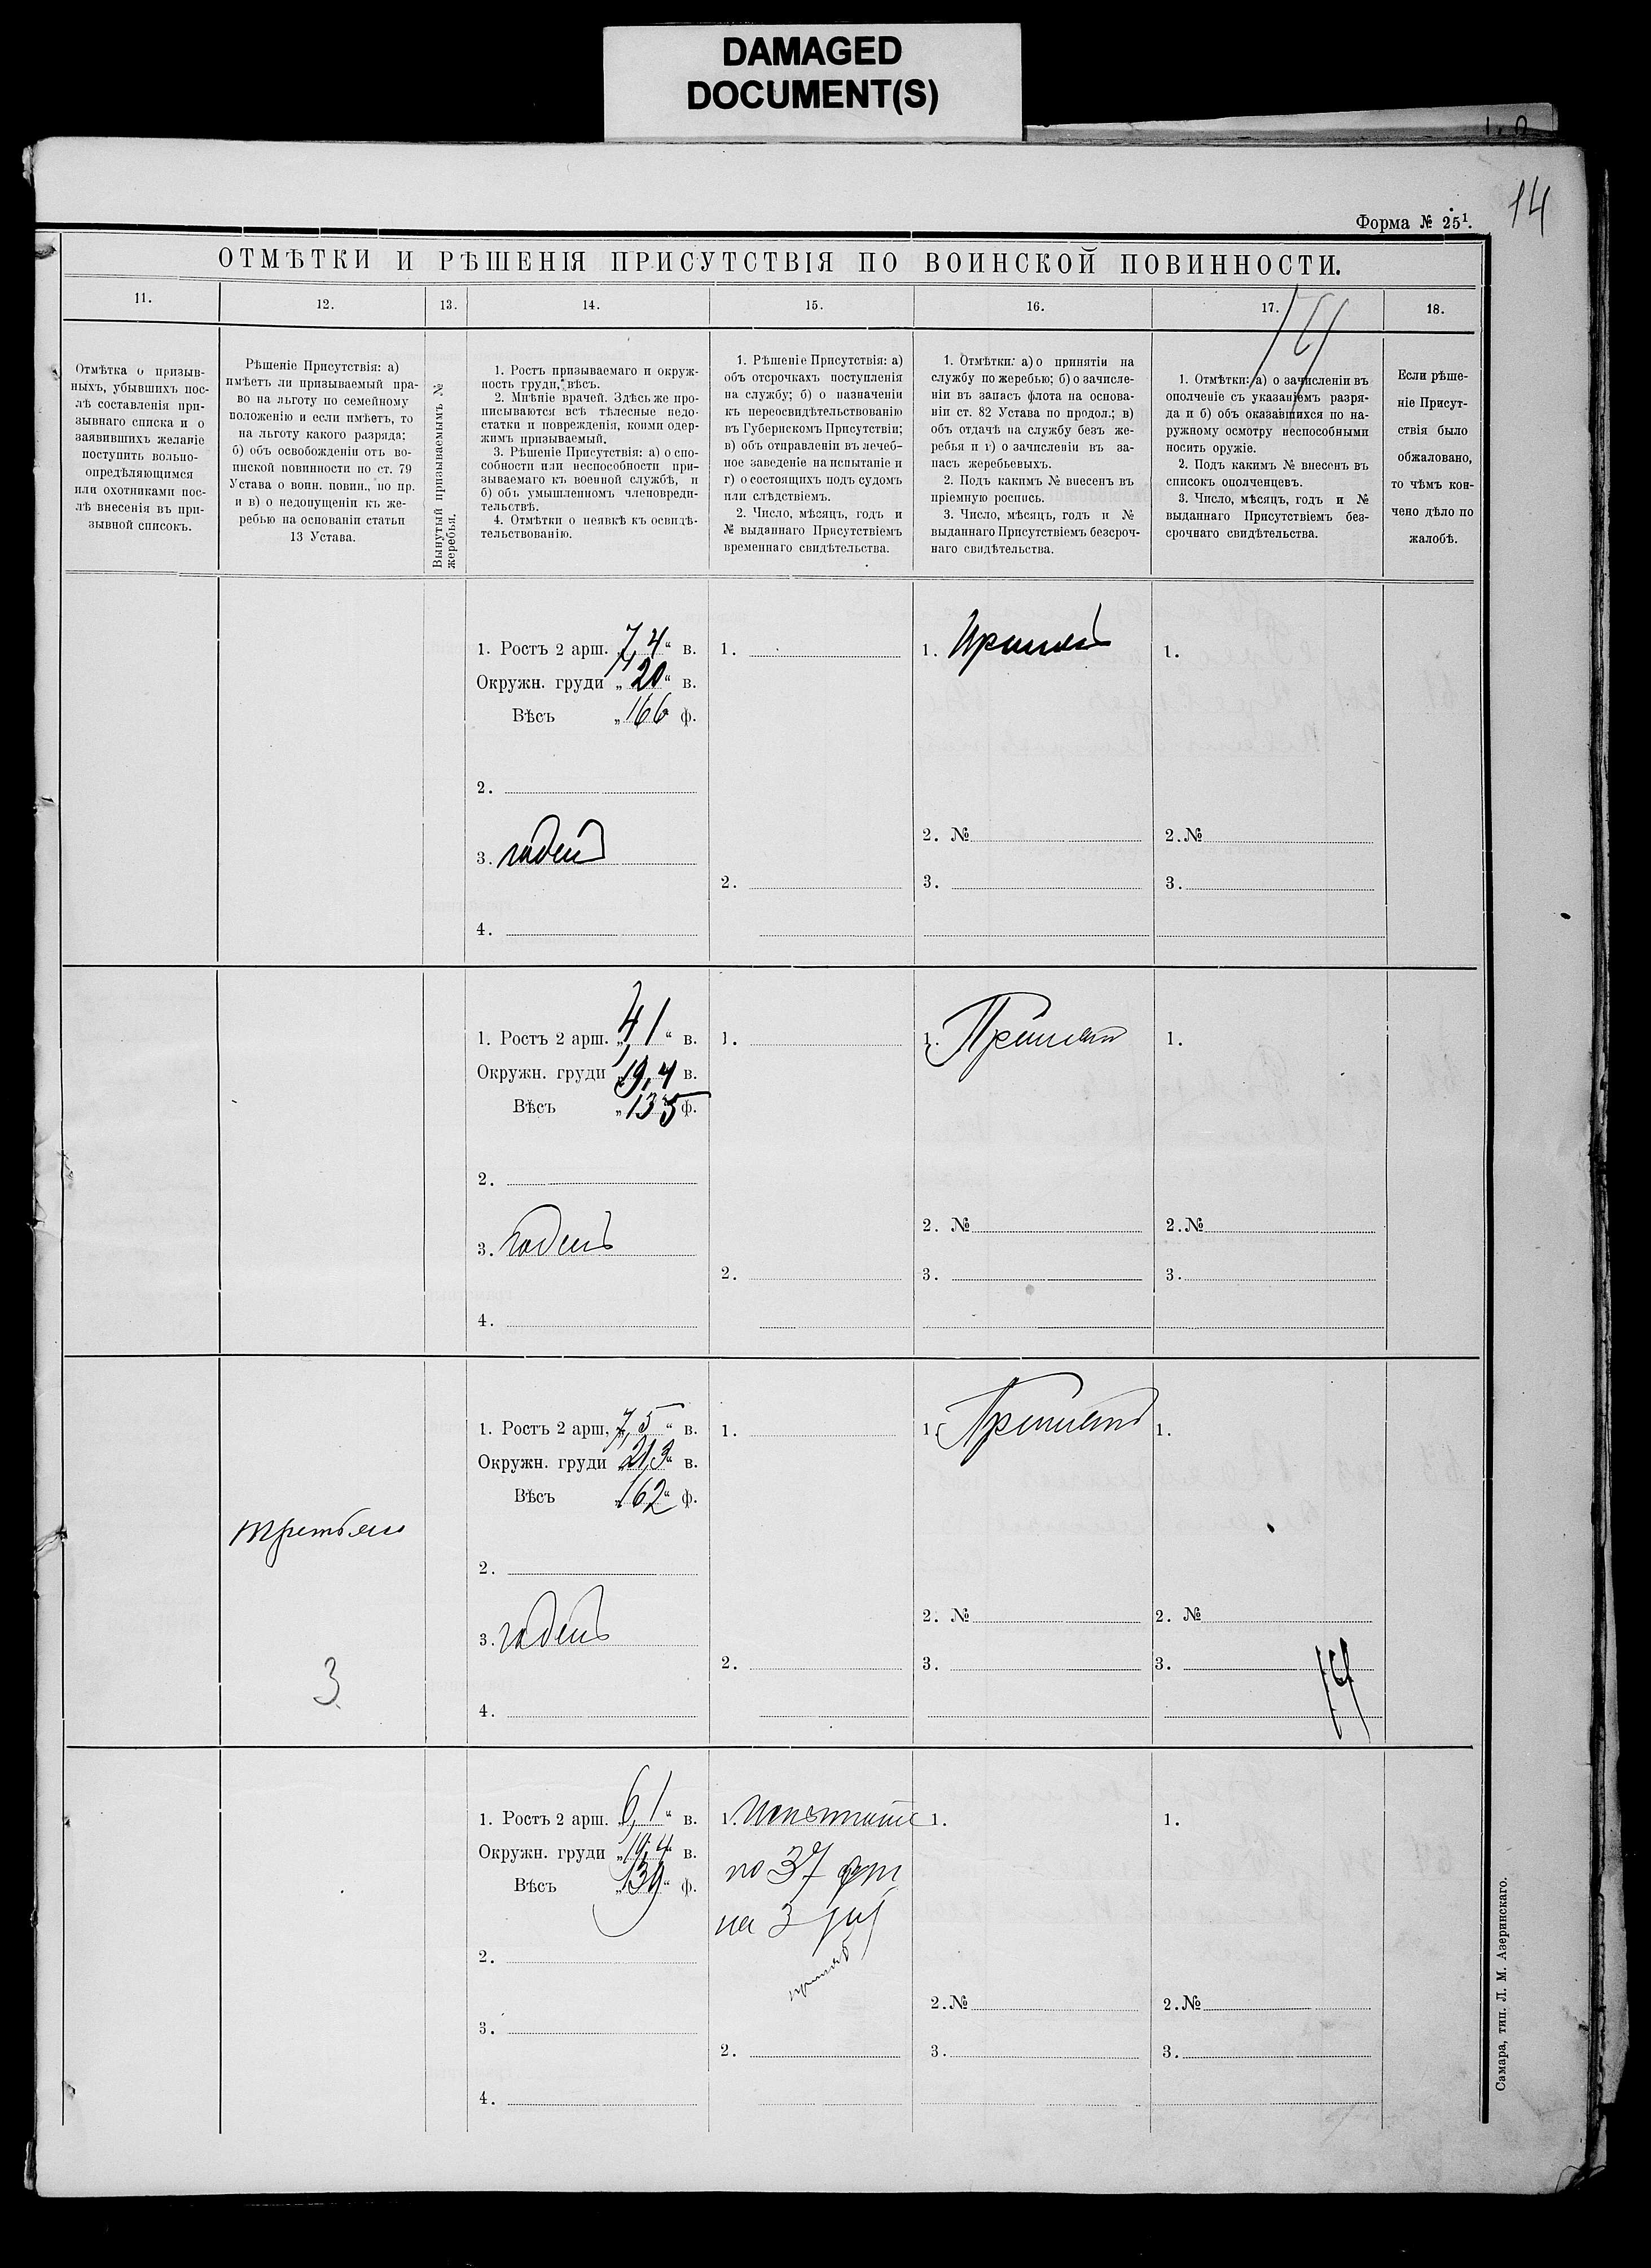 DAMAGED
DOCUMENT(S)
14
Форма № 25¹.
ОТМѢТКИ И РѢШЕНІЯ ПРИСУТСТВІЯ ПО ВОИНСКОЙ ПОВИННОСТИ.
11.
12.
13.
14.
15.
16.
17.
18.
Отмѣтка о призыв-
ныхъ, убывшихъ пос-
лѣ составленія при-
зывнаго списка и о
заявившихъ желаніе
поступить вольно-
опредѣляющимся
или охотниками пос-
лѣ внесенія въ при-
зывной списокъ.
Рѣшеніе Присутствія: а)
имѣетъ ли призываемый пра-
во на льготу по семейному
положенію и если имѣетъ, то
на льготу какого разряда;
б) объ освобожденіи отъ во-
инской повинности по ст. 79
Устава о воин. повин., по пр.
и в) о недопущеніи къ же-
ребью на основаніи статьи
13 Устава.
Вынутый призываемымъ №
жеребья.
1. Ростъ призываемаго и окруж-
ность груди, вѣсъ.
2. Мнѣніе врачей. Здѣсь же про-
писываются всѣ тѣлесные недо-
статки и поврежденія, коими одер-
жимъ призываемый.
3. Рѣшеніе Присутствія: а) о спо-
собности или неспособности при-
зываемаго къ военной службѣ, и
б) объ умышленномъ членовреди-
тельствѣ.
4. Отмѣтки о неявкѣ къ освидѣ-
тельствованію.
1. Рѣшеніе Присутствія: а)
объ отсрочкахъ поступленія
на службу; б) о назначеніи
къ переосвидѣтельствованію
въ Губернскомъ Присутствіи;
в) объ отправленіи въ лечеб-
ное заведеніе на испытаніе и
г) о состоящихъ подъ судомъ
или слѣдствіемъ.
2. Число, мѣсяцъ, годъ и
№ выданнаго Присутствіемъ
временнаго свидѣтельства.
1. Отмѣтки: а) о принятіи на
службу по жеребью; б) о зачисле-
ніи въ запасъ флота на основа-
ніи ст. 82 Устава по продол.; в)
объ отдачѣ на службу безъ же-
ребья и г) о зачисленіи въ за-
пасъ жеребьевыхъ.
2. Подъ какимъ № внесенъ въ
пріемную роспись.
3. Число, мѣсяцъ, годъ и №
выданнаго Присутствіемъ безсроч-
наго свидѣтельства.
1. Отмѣтки: а) о зачисленіи въ
ополченіе съ указаніемъ разря-
да и б) объ оказавшихся по на-
ружному осмотру неспособными
носить оружіе.
2. Подъ какимъ № внесенъ въ
списокъ ополченцевъ.
3. Число, мѣсяцъ, годъ и №
выданнаго Присутствіемъ без-
срочнаго свидѣтельства.
Если рѣше-
ніе Присут-
ствія было
обжаловано,
то чѣмъ кон-
чено дѣло по
жалобѣ.
1. Ростъ 2 арш. „7,4“ в.
Окружн. груди „20“ в.
Вѣсъ „166 ф.
2.
3. годенъ
4.
1.
2.
1. Принятъ
2. №
3.
1.
2. №
3.
1. Ростъ 2 арш. „4,1“ в.
Окружн. груди „19,4 в.
Вѣсъ „135 ф.
2.
3. годенъ
4.
1.
2.
1. Принятъ
2. №
3.
1.
2. №
3.
третьяго
3
1. Ростъ 2 арш. 7,5“ в.
Окружн. груди „21,3“ в.
Вѣсъ „162“ ф.
2.
3. годенъ
4.
1.
2.
1. Принятъ
2. №
3.
1.
2. №
3.
14
1. Ростъ 2 арш. „6,1“ в.
Окружн. груди „19,4“ в.
Вѣсъ „139“ ф.
2.
3.
4.
1. Испытаніе
по 37 ст
на 3
принятъ
2.
1.
2. №
3.
1.
2. №
3.
Самара, тип. Л. М. Азеринскаго.